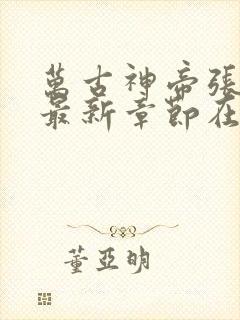 萬古神帝張
最新章節在
董亞明